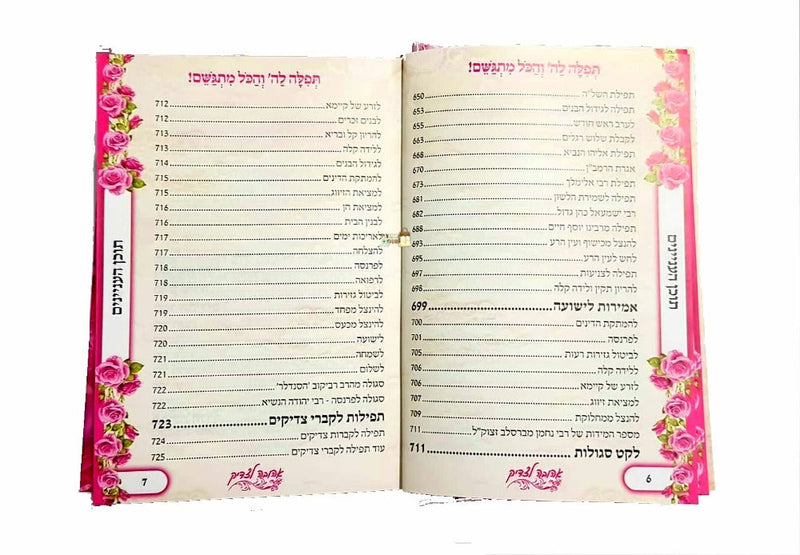 תְּפִלָּה לַה' וְהַכֹּל מִתְגַּשֵּׁם!
תפילת השל"ה 650
תפילה לגידול הבנים 653
לערב ראש חודש 655
לקבלת שלוש רגלים 663
תפילת אליהו הנביא 668
אגרת הרמב"ן 670
תפילת רבי אלימלך 673
תפילה לשמירת הלשון 681
רבי ישמעאל כהן גדול 682
תפילה מרבינו יוסף חיים 688
להנצל מכישוף ועין הרע 693
לחש לעין הרע 695
תפילה לצניעות 697
להריון תקין ולידה קלה 698
אמירות לישועה 699
להמתקת הדינים 700
לפרנסה 701
לביטול גזירות רעות 705
ללידה קלה 706
לזרע של קיימא 705
למציאת זיווג 707
להנצל ממחלוקת 709
מספר המידות של רבי נחמן מברסלב זצוק"ל 711
לקט סגולות 711
אהובה לצדיק
6
תוכן העניינים
תְּפִלָּה לַה' וְהַכֹּל מִתְגַּשֵּׁם!
לזרע של קיימא 712
לבנים זכרים 712
להריון קל ובריא 713
ללידה קלה 713
לגידול הבנים 714
להמתקת הדינים 715
למציאת הזיווג 715
למציאת חן 716
לבנין הבית 716
לאריכות ימים 717
להצלחה 717
לפרנסה 718
לרפואה 718
לביטול גזירות 719
להינצל מפחד 719
להינצל מכעס 720
לישועה 720
לשמחה 721
לשלום 721
סגולה מהרב רביקוב 'הסנדלר' 722
סגולה לפרנסה - רבי יהודה הנשיא 722
תפילות לקברי צדיקים 723
תפילה לקברות צדיקים 724
עוד תפילה לקברי צדיקים 725
אהובה לצדיק
7
תוכן העניינים